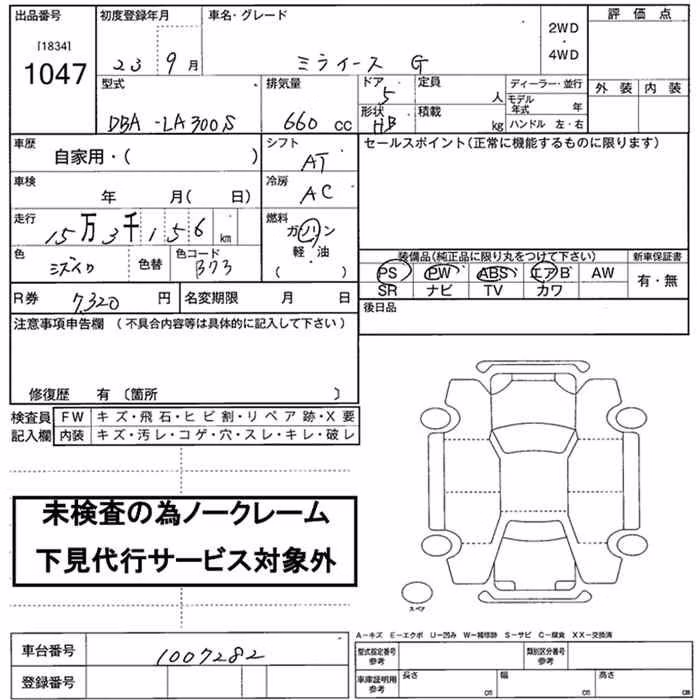 出品番号 初度登録年月 車名・グレード 評価点
[1834]
1047
23 9月 ミライース G 2WD・4WD
外装 内装
型式 排気量 ドア 定員 ディーラー・並行
DBA-LA300S 660 cc 5 人 モデル年式 年
形状 HB 積載 kg ハンドル 左・右
車歴 自家用・( ) シフト AT セールスポイント(正常に機能するものに限ります)
車検 年 月( 日) 冷房 AC
走行 15万3千156km 燃料 ガソリン・軽油 ( )
色 ミズイロ 色替 色コード B73
装備品(純正品に限り丸をつけて下さい) 新車保証書
PS PW ABS エアB AW 有・無
SR ナビ TV カワ
R券 7,320 円 名変期限 月 日 後日品
注意事項申告欄 (不具合内容等は具体的に記入して下さい)
修復歴 有〔箇所 〕
検査員 FW キズ・飛石・ヒビ割・リペア跡・X要
記入欄 内装 キズ・汚レ・コゲ・穴・スレ・キレ・破レ
未検査の為ノークレーム
下見代行サービス対象外
スペア
A-キズ E-エクボ U-凹み W-補修跡 S-サビ C-腐食 XX-交換済
車台番号 1007282 型式指定番号 参考 類別区分番号 参考
登録番号 車庫証明用 参考 長さ cm 幅 cm 高さ cm